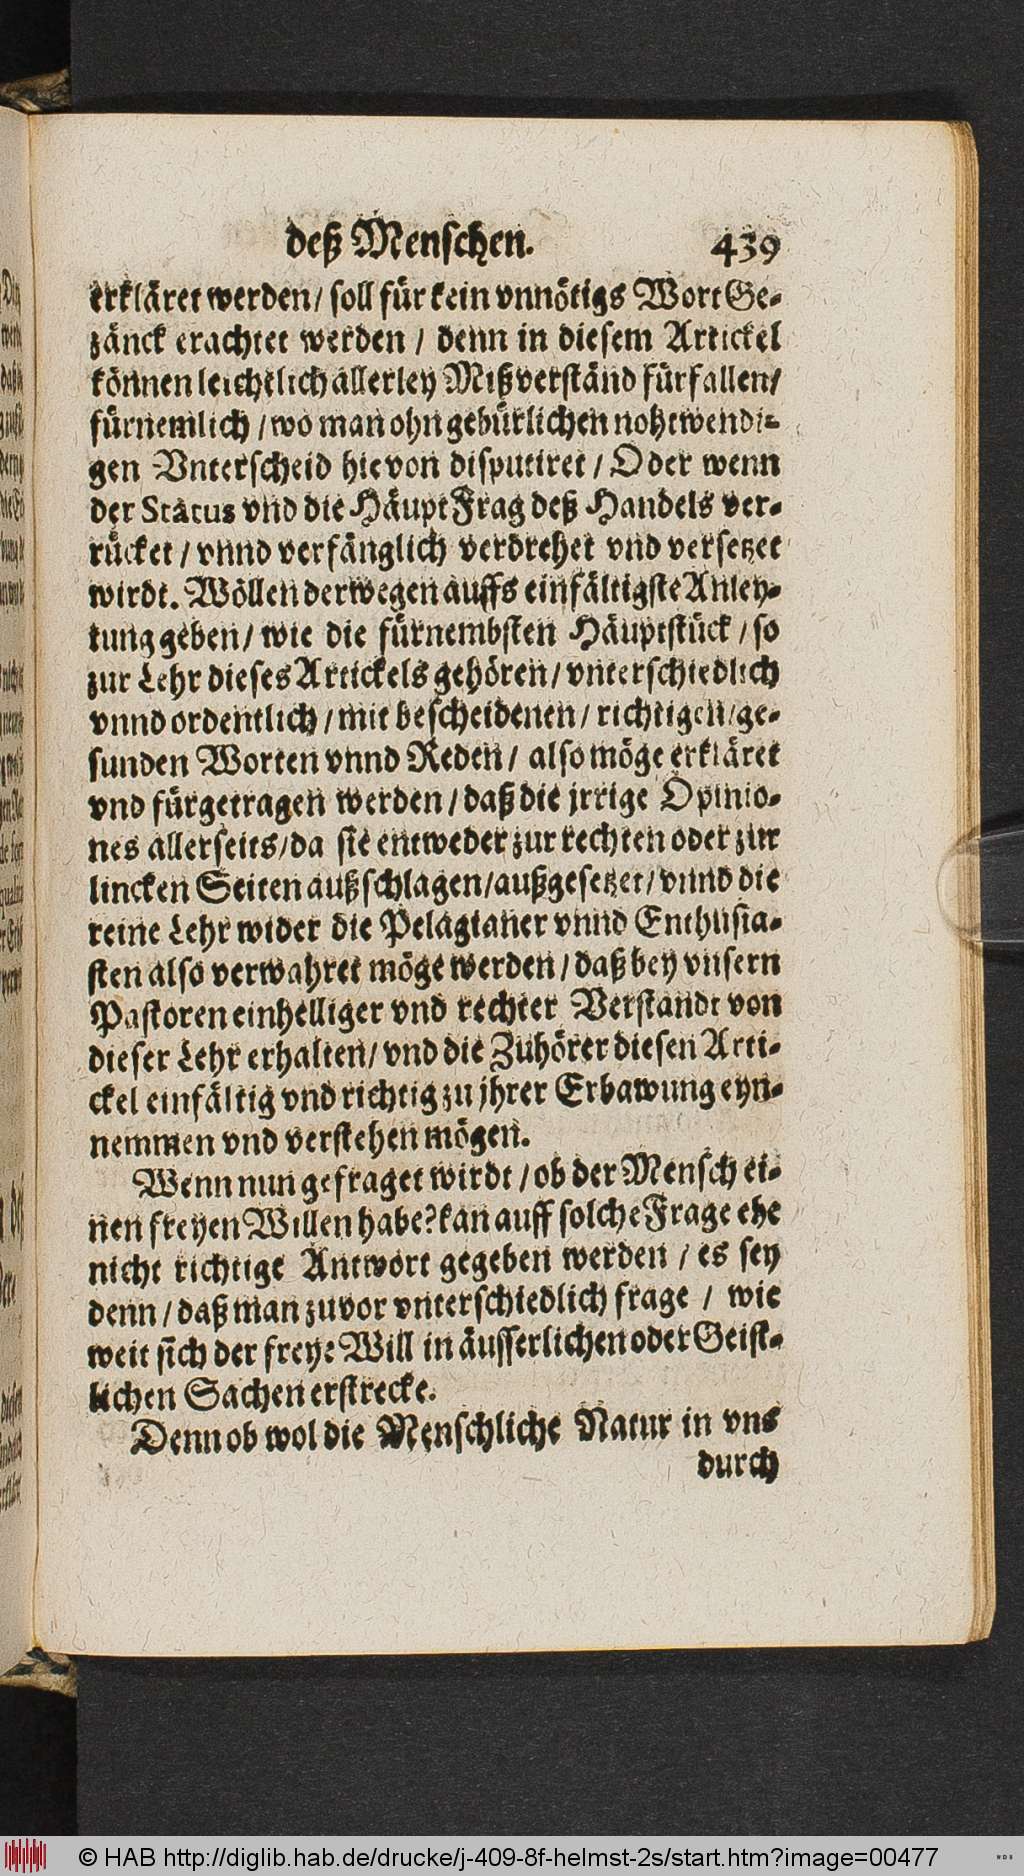 deß Menschen. 439
erkläret werden/ soll für kein vnnötigs Wort Ge-
zänck erachtet werden / denn in diesem Artickel
können leichtlich allerley Mißverständ fürfallen/
fürnemlich / wo man ohn gebürlichen nohtwendi-
gen Vnterscheid hievon disputiret / Oder wenn
der Status vnd die Häupt Frag deß Handels ver-
rücket / vnnd verfänglich verdrehet vnd versetzet
wirdt. Wöllen derwegen auffs einfältigste Anley-
tung geben/ wie die fürnembsten Häuptstück / so
zur Lehr dieses Artickels gehören/ vnterschiedlich
vnnd ordentlich / mit bescheidenen / richtigen / ge-
sunden Worten vnnd Reden/ also möge erkläret
vnd fürgetragen werden / daß die jrrige Opinio-
nes allerseits/ da sie entweder zur rechten oder zur
lincken Seiten außschlagen/außgesetzet/ vnnd die
reine Lehr wider die Pelagianer vnnd Enthusia-
sten also verwahret möge werden / daß bey vnsern
Pastoren einhelliger vnd rechter Verstandt von
dieser Lehr erhalten/ vnd die Zuhörer diesen Arti-
ckel einfältig vnd richtig zu jhrer Erbawung eyn-
nemmen vnd verstehen mögen.
Wenn nun gefraget wirdt / ob der Mensch ei-
nen freyen Willen habe? kan auff solche Frage ehe
nicht richtige Antwort gegeben werden / es sey
denn / daß man zuvor vnterschiedlich frage / wie
weit sich der freye Will in äusserlichen oder Geist-
lichen Sachen erstrecke.
Denn ob wol die Menschliche Natur in vns
durch
© HAB http://diglib.hab.de/drucke/j-409-8f-helmst-2s/start.htm?image=00477